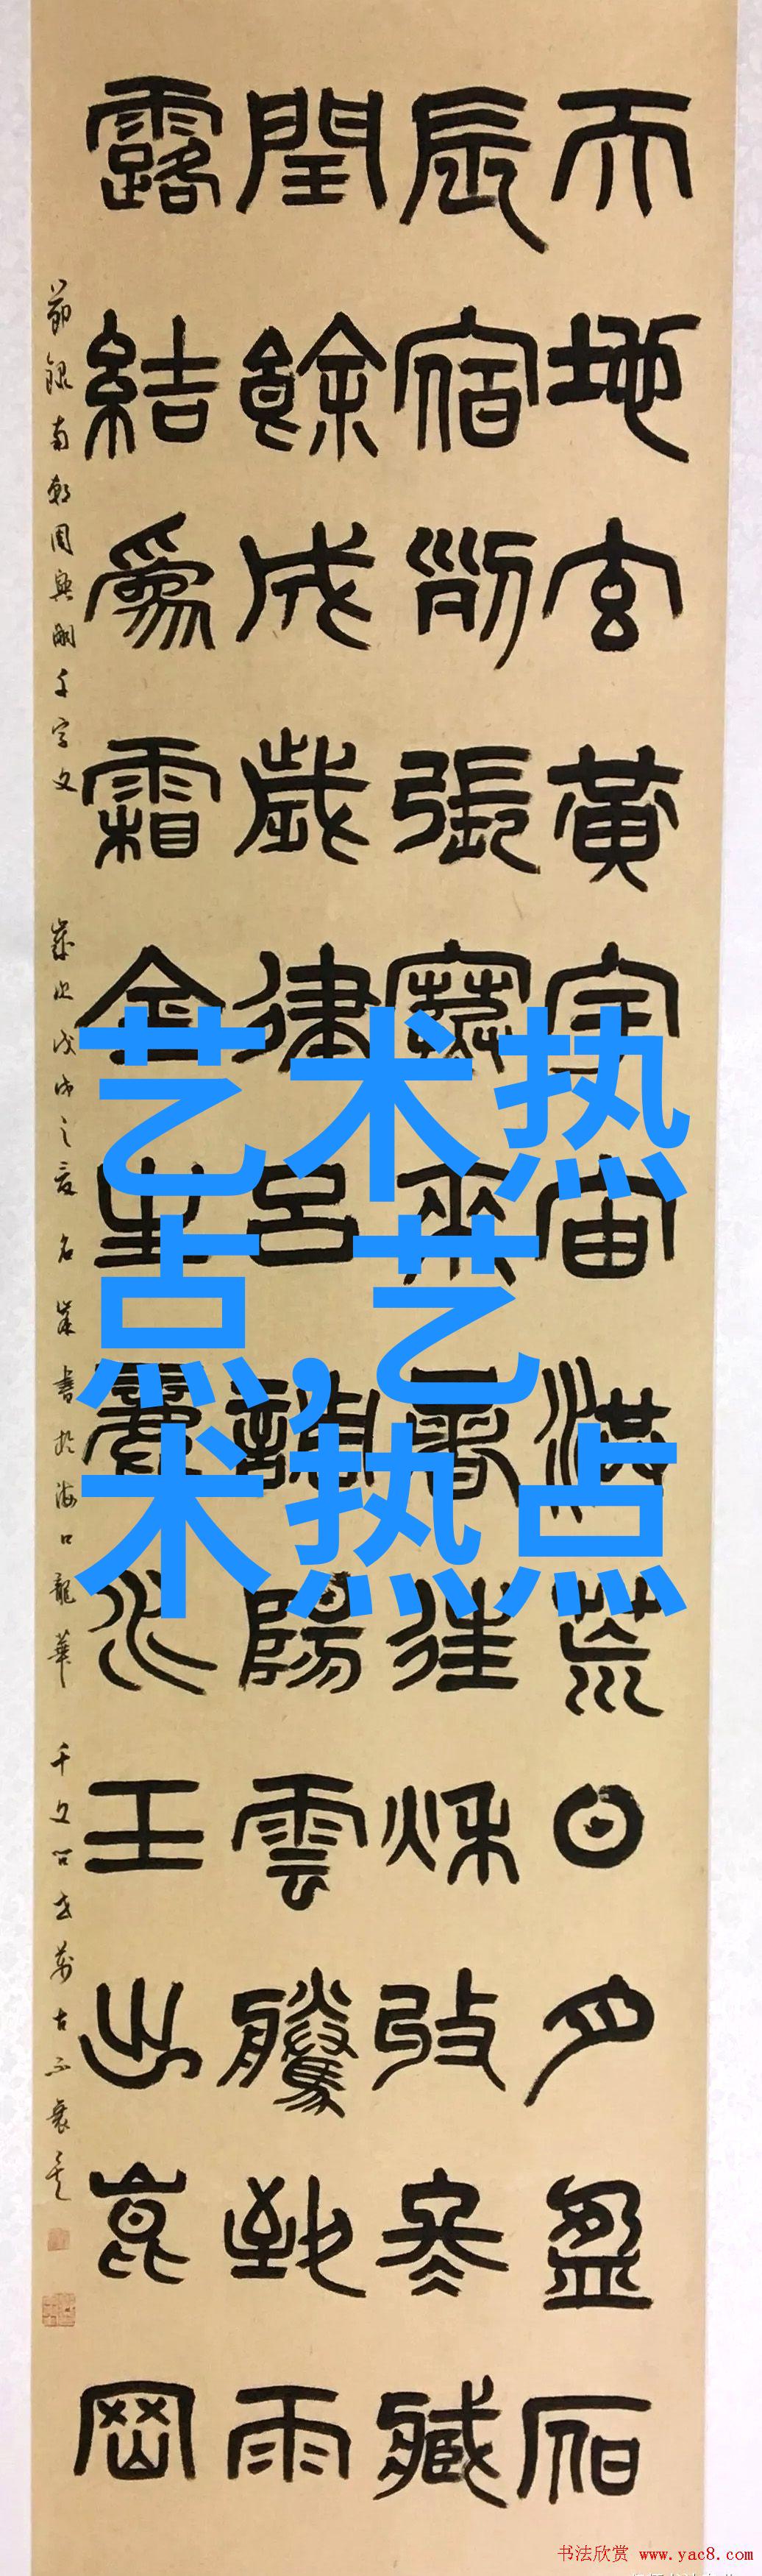 天地玄黃宇宙洪荒日月盈昃
辰宿列張寒來暑往秋收冬藏
閏餘成歲律呂調陽雲騰致雨
露結為霜金生麗水玉出崑岡
節錄南朝周興嗣千字文 歲次戊戌之夏 名 書於海口龍華 千文 萬古不衰
艺术热
点,艺
术热点
书法欣赏 www.yac8.com